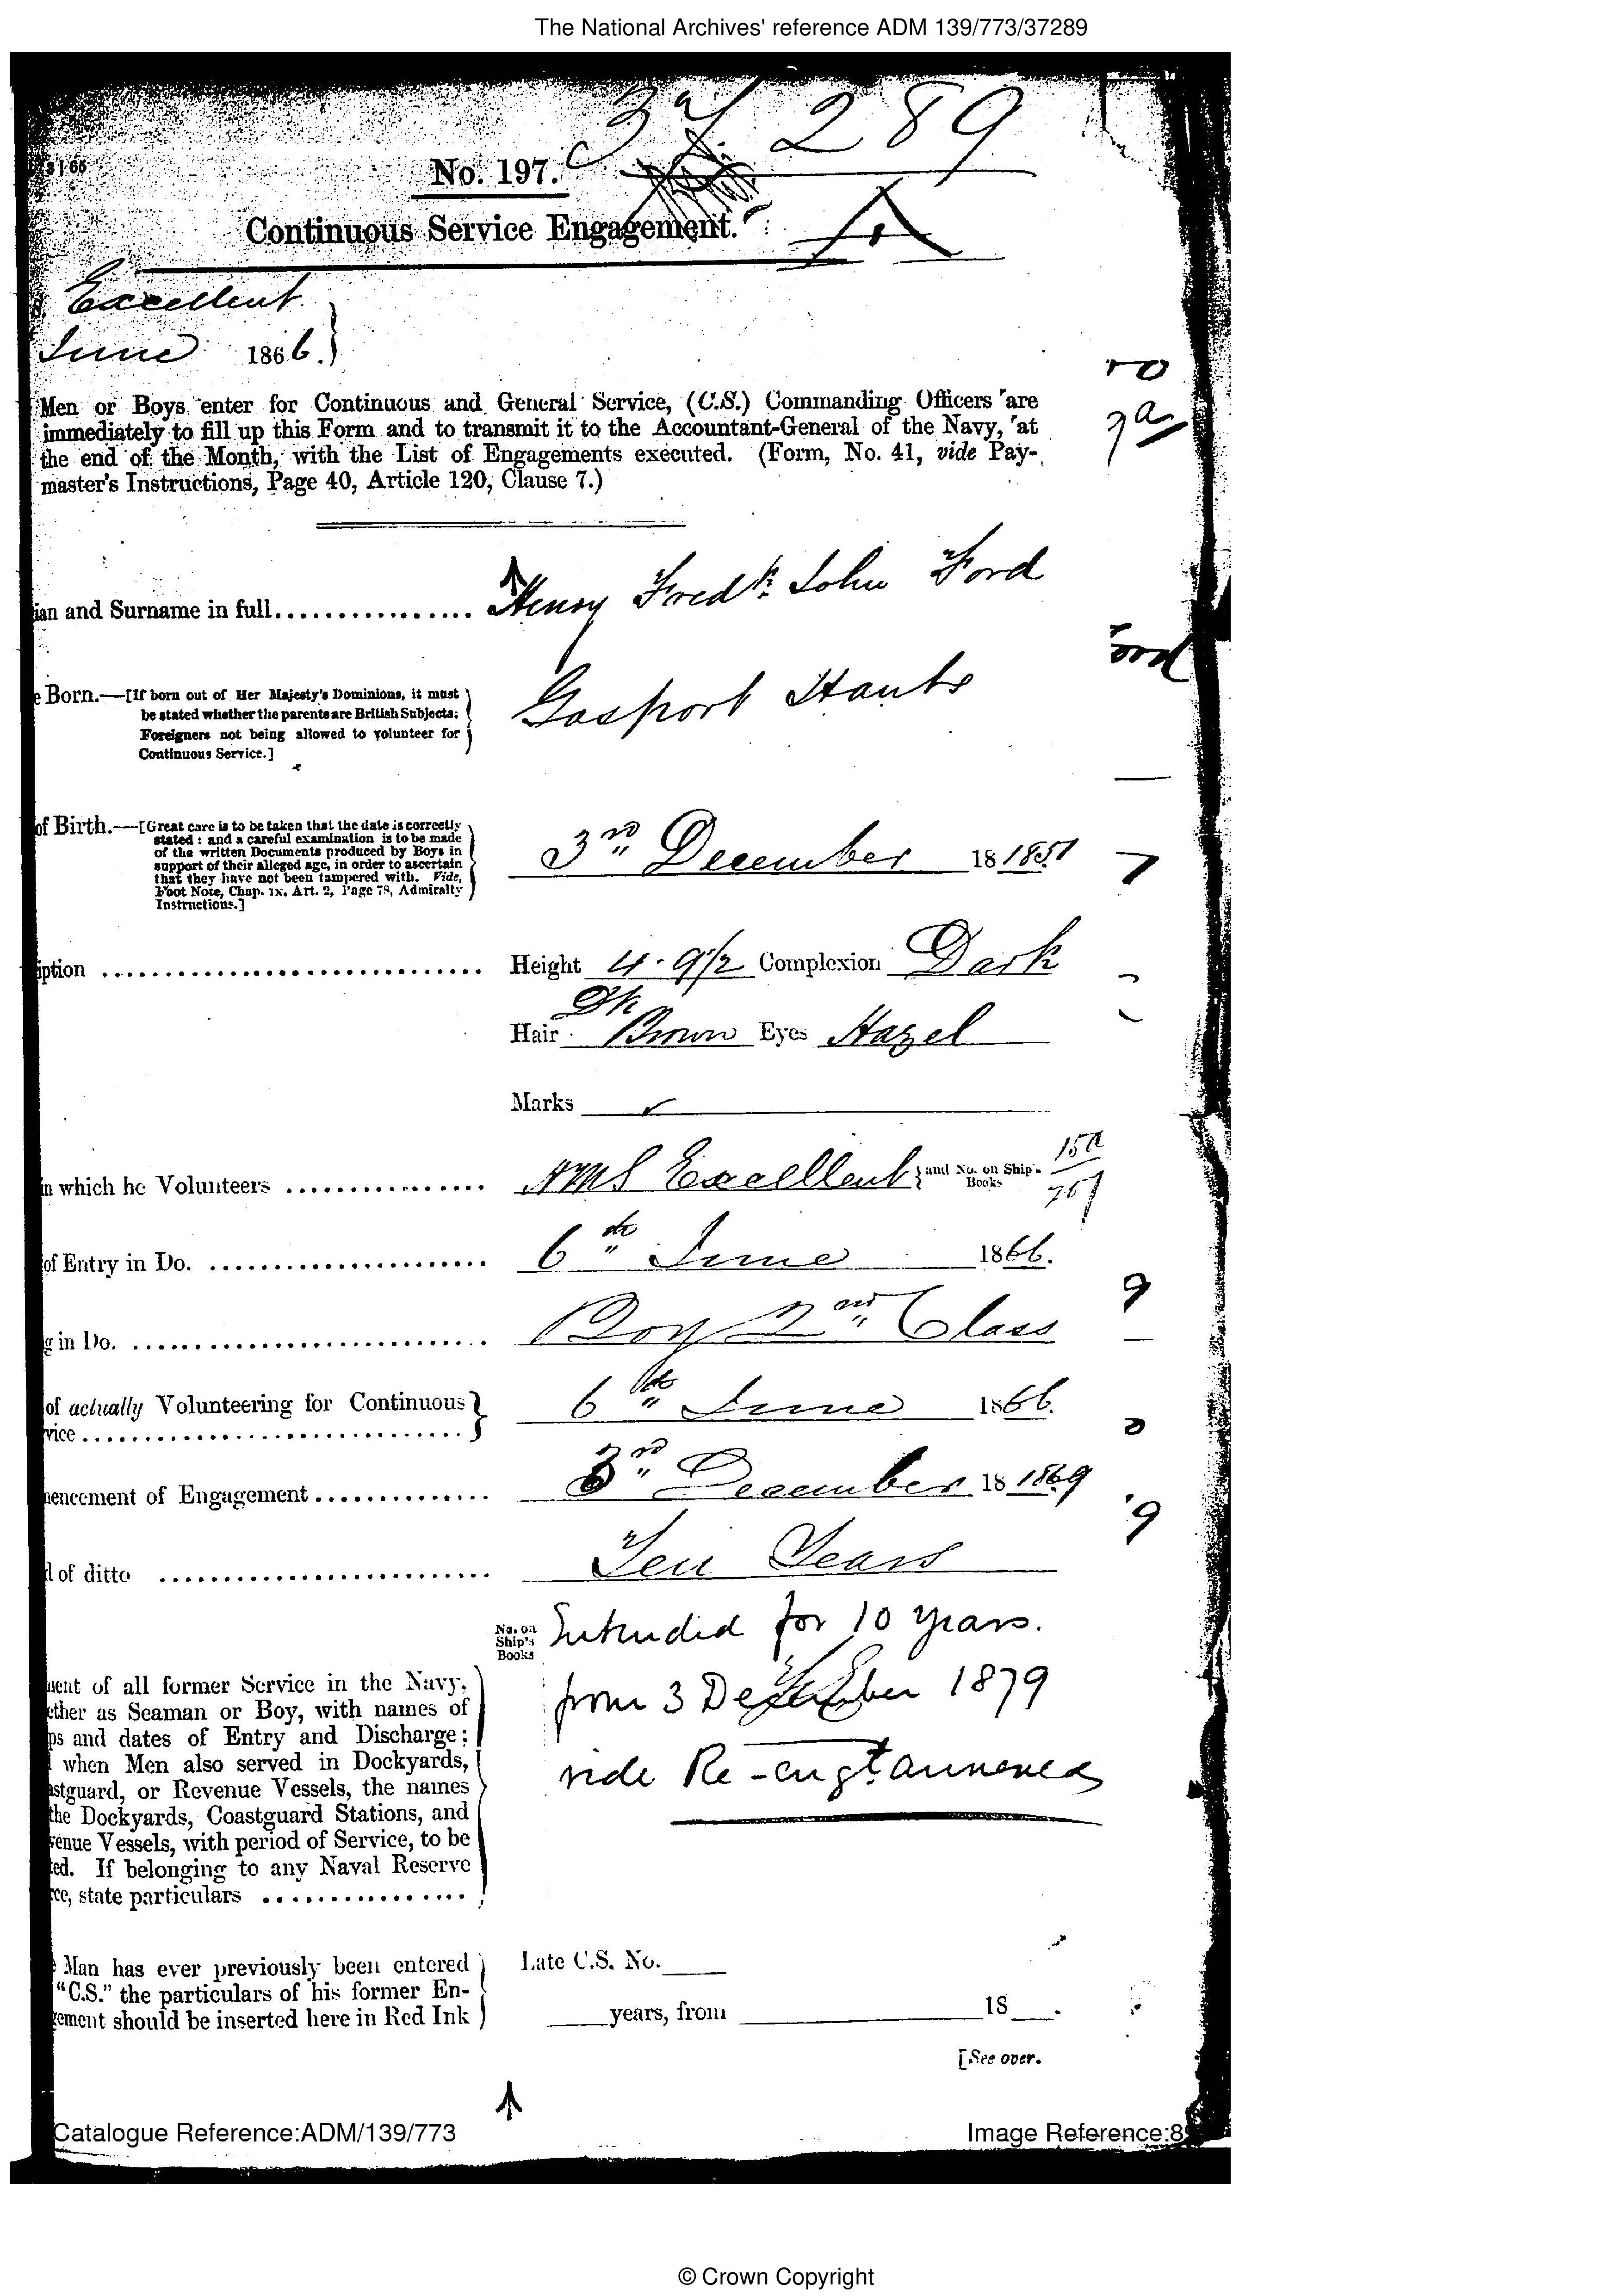 The National Archives' reference ADM 139/773/37289
37289
No. 197.
Continuous Service Engagement.
A
Excellent
June 1866.
Men or Boys enter for Continuous and General Service, (C.S.) Commanding Officers are
immediately to fill up this Form and to transmit it to the Accountant-General of the Navy, at
the end of the Month, with the List of Engagements executed. (Form, No. 41, vide Pay-
master's Instructions, Page 40, Article 120, Clause 7.)
ian and Surname in full................ Henry Fredk. John Ford
e Born.—[If born out of Her Majesty's Dominions, it must
be stated whether the parents are British Subjects:
Foreigners not being allowed to volunteer for
Continuous Service.]
Gosport Hants
of Birth.—[Great care is to be taken that the date is correctly
stated: and a careful examination is to be made
of the written Documents produced by Boys in
support of their alleged age, in order to ascertain
that they have not been tampered with. Vide,
Foot Note, Chap. ix. Art. 2, Page 78, Admiralty
Instructions.]
3rd December 18 1851
iption .............................. Height 4.9½ Complexion Dark
Hair Dk Brown Eyes Hazel
Marks ✓
in which he Volunteers ................ HMS Excellent and No. on Ship's Books 15a
of Entry in Do. ...................... 6th June 1866.
g in Do. ............................ Boy 2nd Class
of actually Volunteering for Continuous
vice .............................. 6th June 1866.
encement of Engagement.............. 3rd December 18 1869
d of ditto .......................... Ten Years
No. on
Ship's
Books
Extended for 10 years.
from 3 December 1879
vide Re-engt annexed
ent of all former Service in the Navy,
ther as Seaman or Boy, with names of
ps and dates of Entry and Discharge;
when Men also served in Dockyards,
stguard, or Revenue Vessels, the names
the Dockyards, Coastguard Stations, and
enue Vessels, with period of Service, to be
ed. If belonging to any Naval Reserve
ce, state particulars ................
Man has ever previously been entered
"C.S." the particulars of his former En-
gement should be inserted here in Red Ink
Late C.S. No.
years, from 18 .
[See over.
Catalogue Reference:ADM/139/773
Image Reference:8
© Crown Copyright